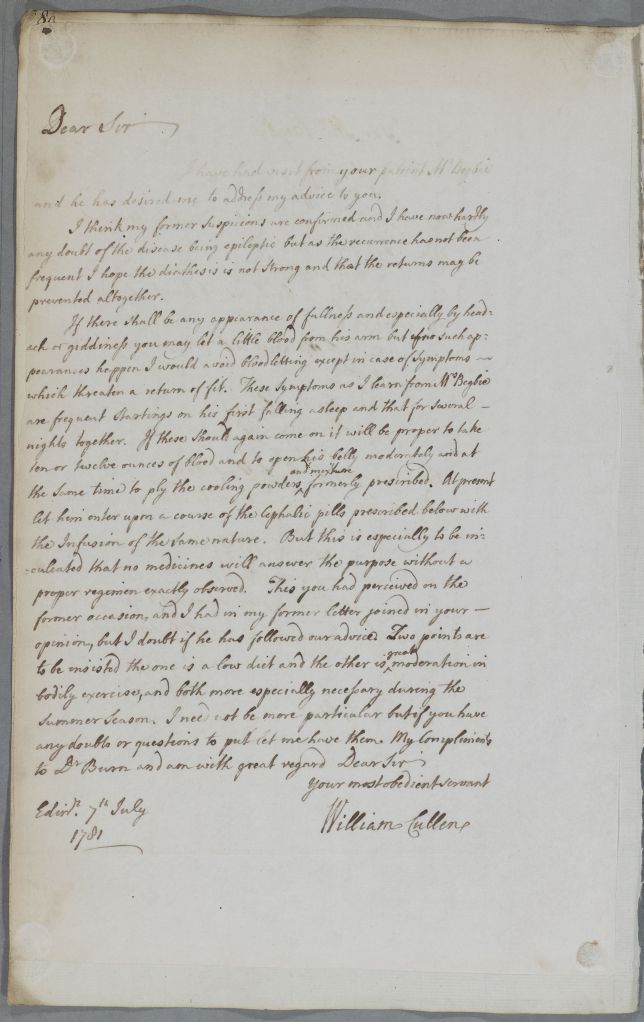 Dear Sir
I have had visit from your patient Mr Begbie
and he has desired me to address my advice to you.
I think my former Suspicions are confirmed and I have now hardly
any doubt of the disease being epileptic but as the recurrence has not been
frequent I hope the diathesis is not Strong and that the returns may be
prevented altogether.
If there shall be any appearance of fullness and especially by head-
ach or giddiness you may let a little blood from his arm but if no such ap-
pearances happen I would avoid bloodletting except in case of Symptoms
which threaten a return of fit. These Symptoms as I learn from Mrs Begbie
are frequent Startings on his first falling asleep and that for Several
nights together. If these should again come on it will be proper to take
ten or twelve ounces of blood and to open his belly moderately and at
the same time to ply the cooling powders and mixture formerly prescribed. At present
let him enter upon a course of the Cephalic pills prescribed below with
the Infusion of the same nature. But this is especially to be in-
-culcated that no medicines will answer the purpose without a
proper regimen exactly observed. This you had perceived on the
former occasion, and I had in my former letter joined in your
opinion, but I doubt if he has followed our advice. Two points are
to be insisted the one is a low diet and the other is great moderation in
bodily exercise, and both more especially necessary during the
Summer Season. I need not be more particular but if you have
any doubts or questions to put let me have them. My Compliments
to Dr Burn and am with great regard Dear Sir
Your most obedient servant
William Cullen
Edinr. 7th July
1781